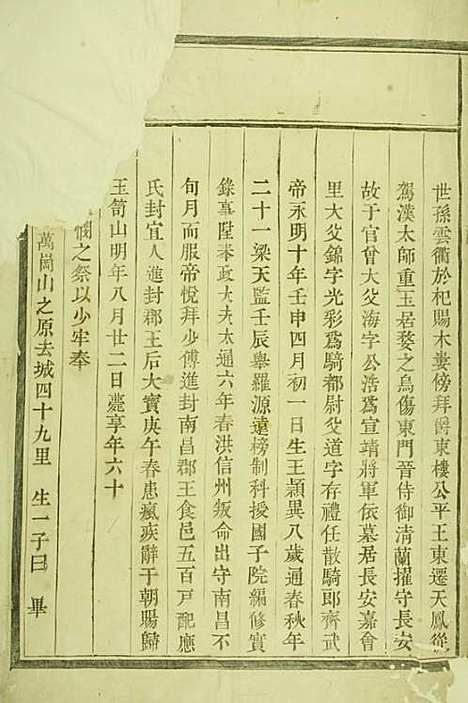 世孫雲衢於杞賜木婁傍拜爵東樓公平王東遷天鳳從
駕漢太師重玉居婺之烏傷東門晉侍御清蘭擢守長安
故于官曾大父海字公浩爲宣靖將軍依墓居長安嘉會
里大父錦字光彩爲騎都尉父道字存禮任散騎郎齊武
帝永明十年壬申四月初一日生王穎異八歲通春秋年
二十一梁天監壬辰舉羅源遠榜制科授國子院編修實
錄事陞奉政大夫大通六年春洪信州叛命出守南昌不
旬月而服帝悅拜少傅進封南昌郡王食邑五百戸配應
氏封宜人進封郡王后大寶庚午春患瘋疾辭于朝賜歸
玉笥山明年八月廿二日薨享年六十
之祭以少牢奉
萬崗山之原去城四十九里 生一子曰 畢